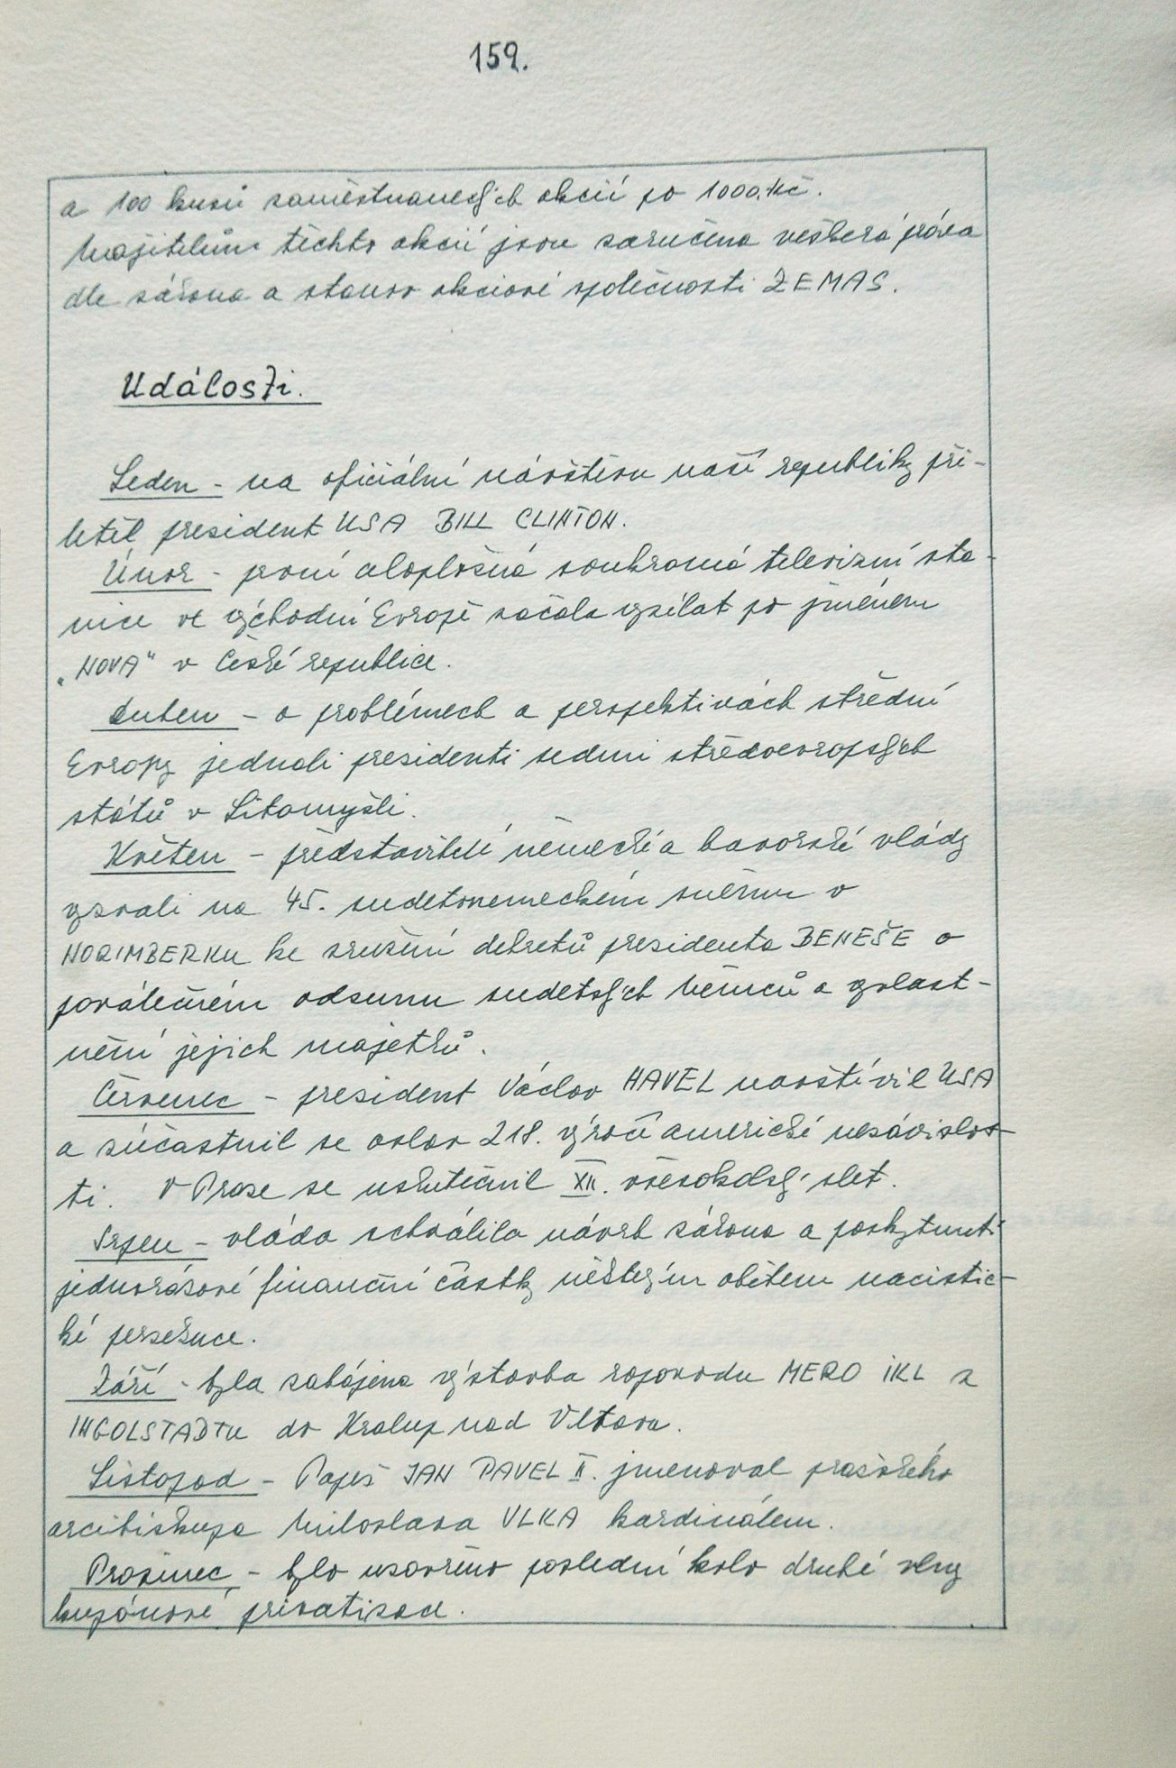 159.
a 100 kusů zaměstnaneckých akcií po 1000.Kč.
Majitelům těchto akcií jsou zaručena veškerá práva
dle zákona a stanov akciové společnosti ZEMAS.
Události.
Leden - na oficiální návštěvu naší republiky při-
letěl president USA BILL CLINTON.
Únor - první celoplošná soukromá televizní sta-
nice ve východní Evropě začala vysílat po jménem
„NOVA" v České republice.
Duben - o problémech a perspektivách střední
Evropy jednali presidenti sedmi středoevropských
států v Litomyšli.
Květen - představitelé německé a bavorské vlády
vyzvali na 45. sudetoněmeckém sněmu v
NORIMBERKU ke zrušení dekretů presidenta BENEŠE o
poválečném odsunu sudetských Němců a vyvlast-
nění jejich majetků.
Červenec - president Václav HAVEL navštívil USA
a zúčastnil se oslav 218. výročí americké nezávislos-
ti. V Praze se uskutečnil XII. všesokolský slet.
Srpen - vláda schválila návrh zákona a poskytnutí
jednorázové finanční částky některým obětem nacistic-
ké persekuce.
Září - byla zahájena výstavba ropovodu MERO IKL z
INGOLSTADTU do Kralup nad Vltavou.
Listopad - Papež JAN PAVEL II. jmenoval pražského
arcibiskupa Miloslava VLKA kardinálem.
Prosinec - bylo uzavřeno poslední kolo druhé vlny
kupónové privatizace.